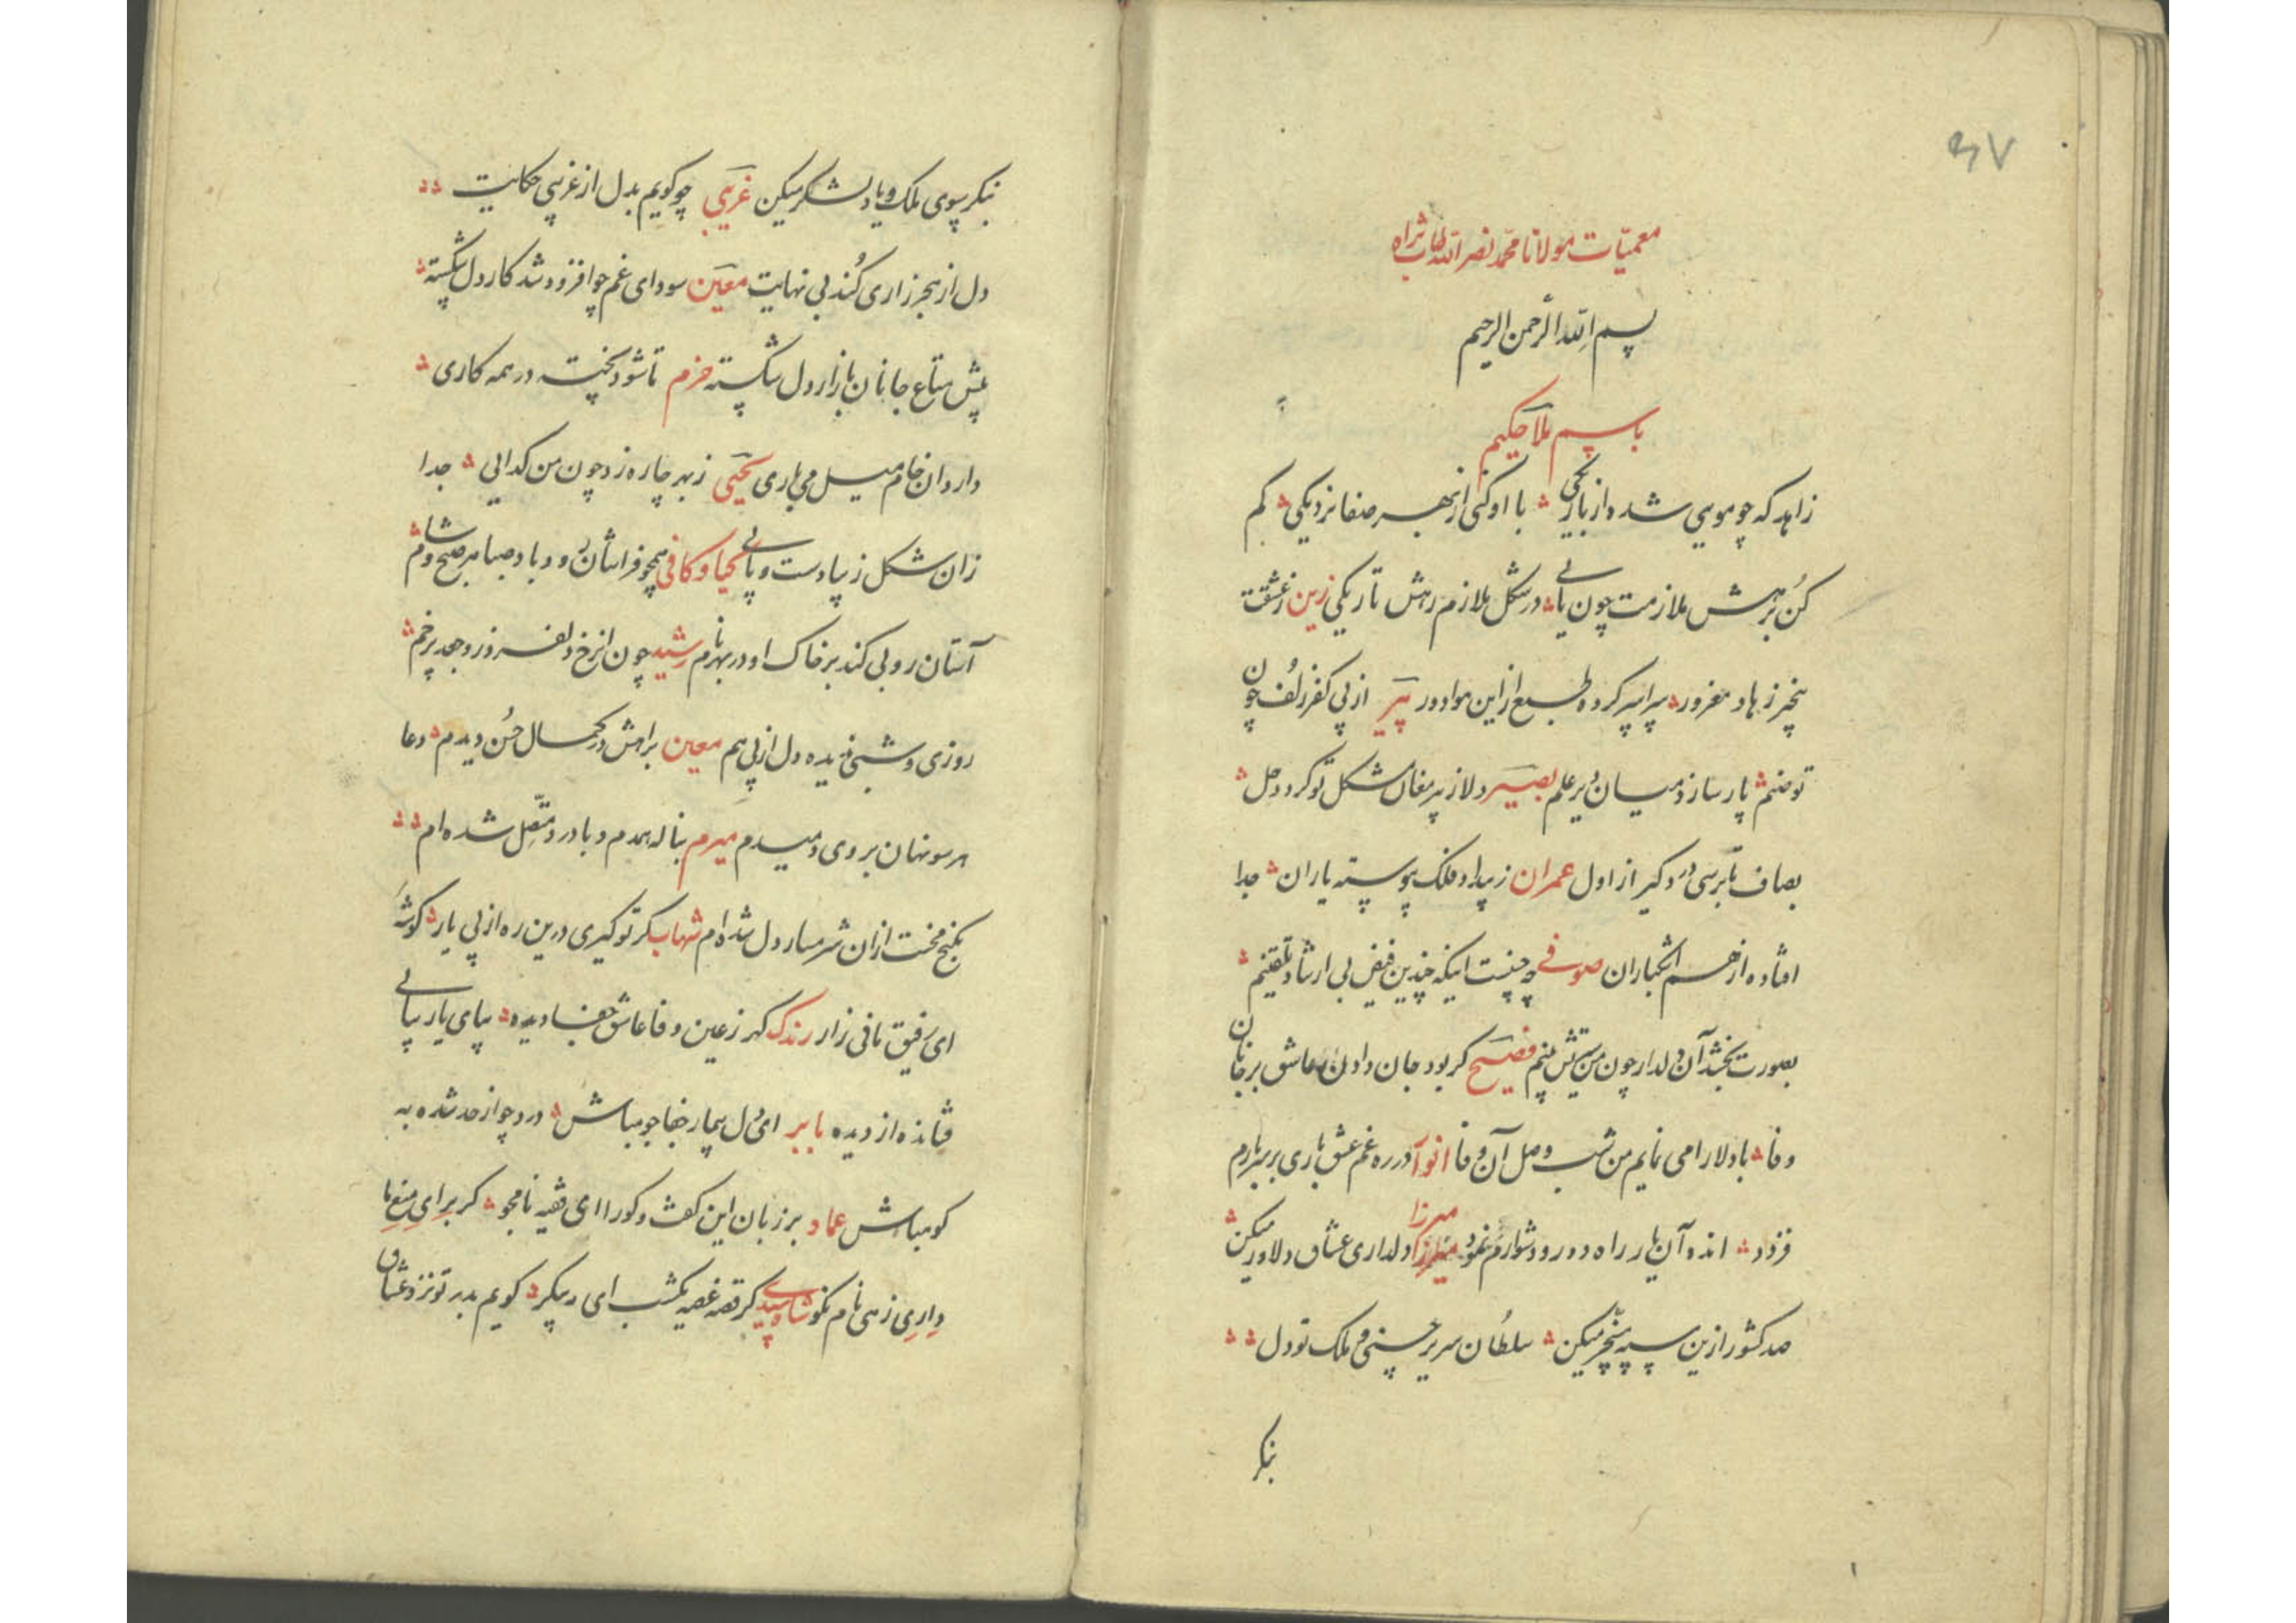 ۳۷
معمیّات مولانا محمد نصر الله طاب ثراه
بسم الله الرحمن الرحیم
باسم ملا حکیم
زاهد که چو مویی شده از باریکی با او کنی از بهر صفا نزدیکی کم
کن بر هش ملازمت چون پائی در شکل ملازم رهش تاریکی زین ز عشقت
بیخبر زهاد مغرور سراسر کرده طبع از این هوا دور پیر از پی کفر زلف چون
تو صنم پارسا زد میان دیر علم بصیر دلا از پیر مغان مشکل تو کرد حل
بصاف تا برسی درد گیر از اول عمران ز بیداد فلک پیوسته یاران جدا
افتاده از هم اشکباران صوفی چه چیست اینکه چندین فیض بی ارشاد تلقینم
بصورت بخشد آن دلدار چون من پیش بینم فصیح گر بود جان دادن عاشق بر جانان
وفا با دلارامی نمایم من شب وصل آن وفا انور در ره غم عشق باری بر سر بارم
فزود انده آن بار راه دور و دشوارم نمود میرزا دلداری عشاق دلاور میکن
صد کشور ازین سپه مسخر میکن سلطان سریر حسنی و ملک تو دل
بنکر
بنکر سوی ملک و یاد لشکر میکن غریبی چو کویم بدل از غریبی حکایت
دل از هجر زاری کند بی نهایت معین سودای غم چو افزود شد کار دل شکسته
پیش متاع جانان بازار دل شکسته خرم تا شود پخته در همه کاری
دارد آن خام میل می باری یحیی ز بهر چاره زد چون من کدایی جدا
زان شکل زیبا دست و پائی یحیا و کافی همچو فراشان بود باد صبا هر صبح و شام
آستان روبی کند بر خاک او در بهر نام رشید چون از رخ دلفروز و جعد پر خم
روزی و شبی ندیده دل از پی هم معین براهش در کمال حسن دیدم دعا
هر سو نهان بر وی دمیدم میرم بناله همدم و با درد متصل شده ام
بکنج محنت از آن شرمسار دل شده ام شهاب گر تو گیری درین ره از پی یار گوشه
ای رفیق نافی زار رندک گهر ز عین وفا عاشق جفا دیده بپای یار بپائی
فشانده از دیده بابر ای دل بیمار جفا جو مباش درد چو از حد شده به
کو مباش عماد بر زبان این گفت و کو را ای فقیه نامجو گر برای منع ما
داری زهی نام نکو شاه سیدی گر قصه غصه یکشب ای رشک قمر گویم بدر تو نزد عشاق